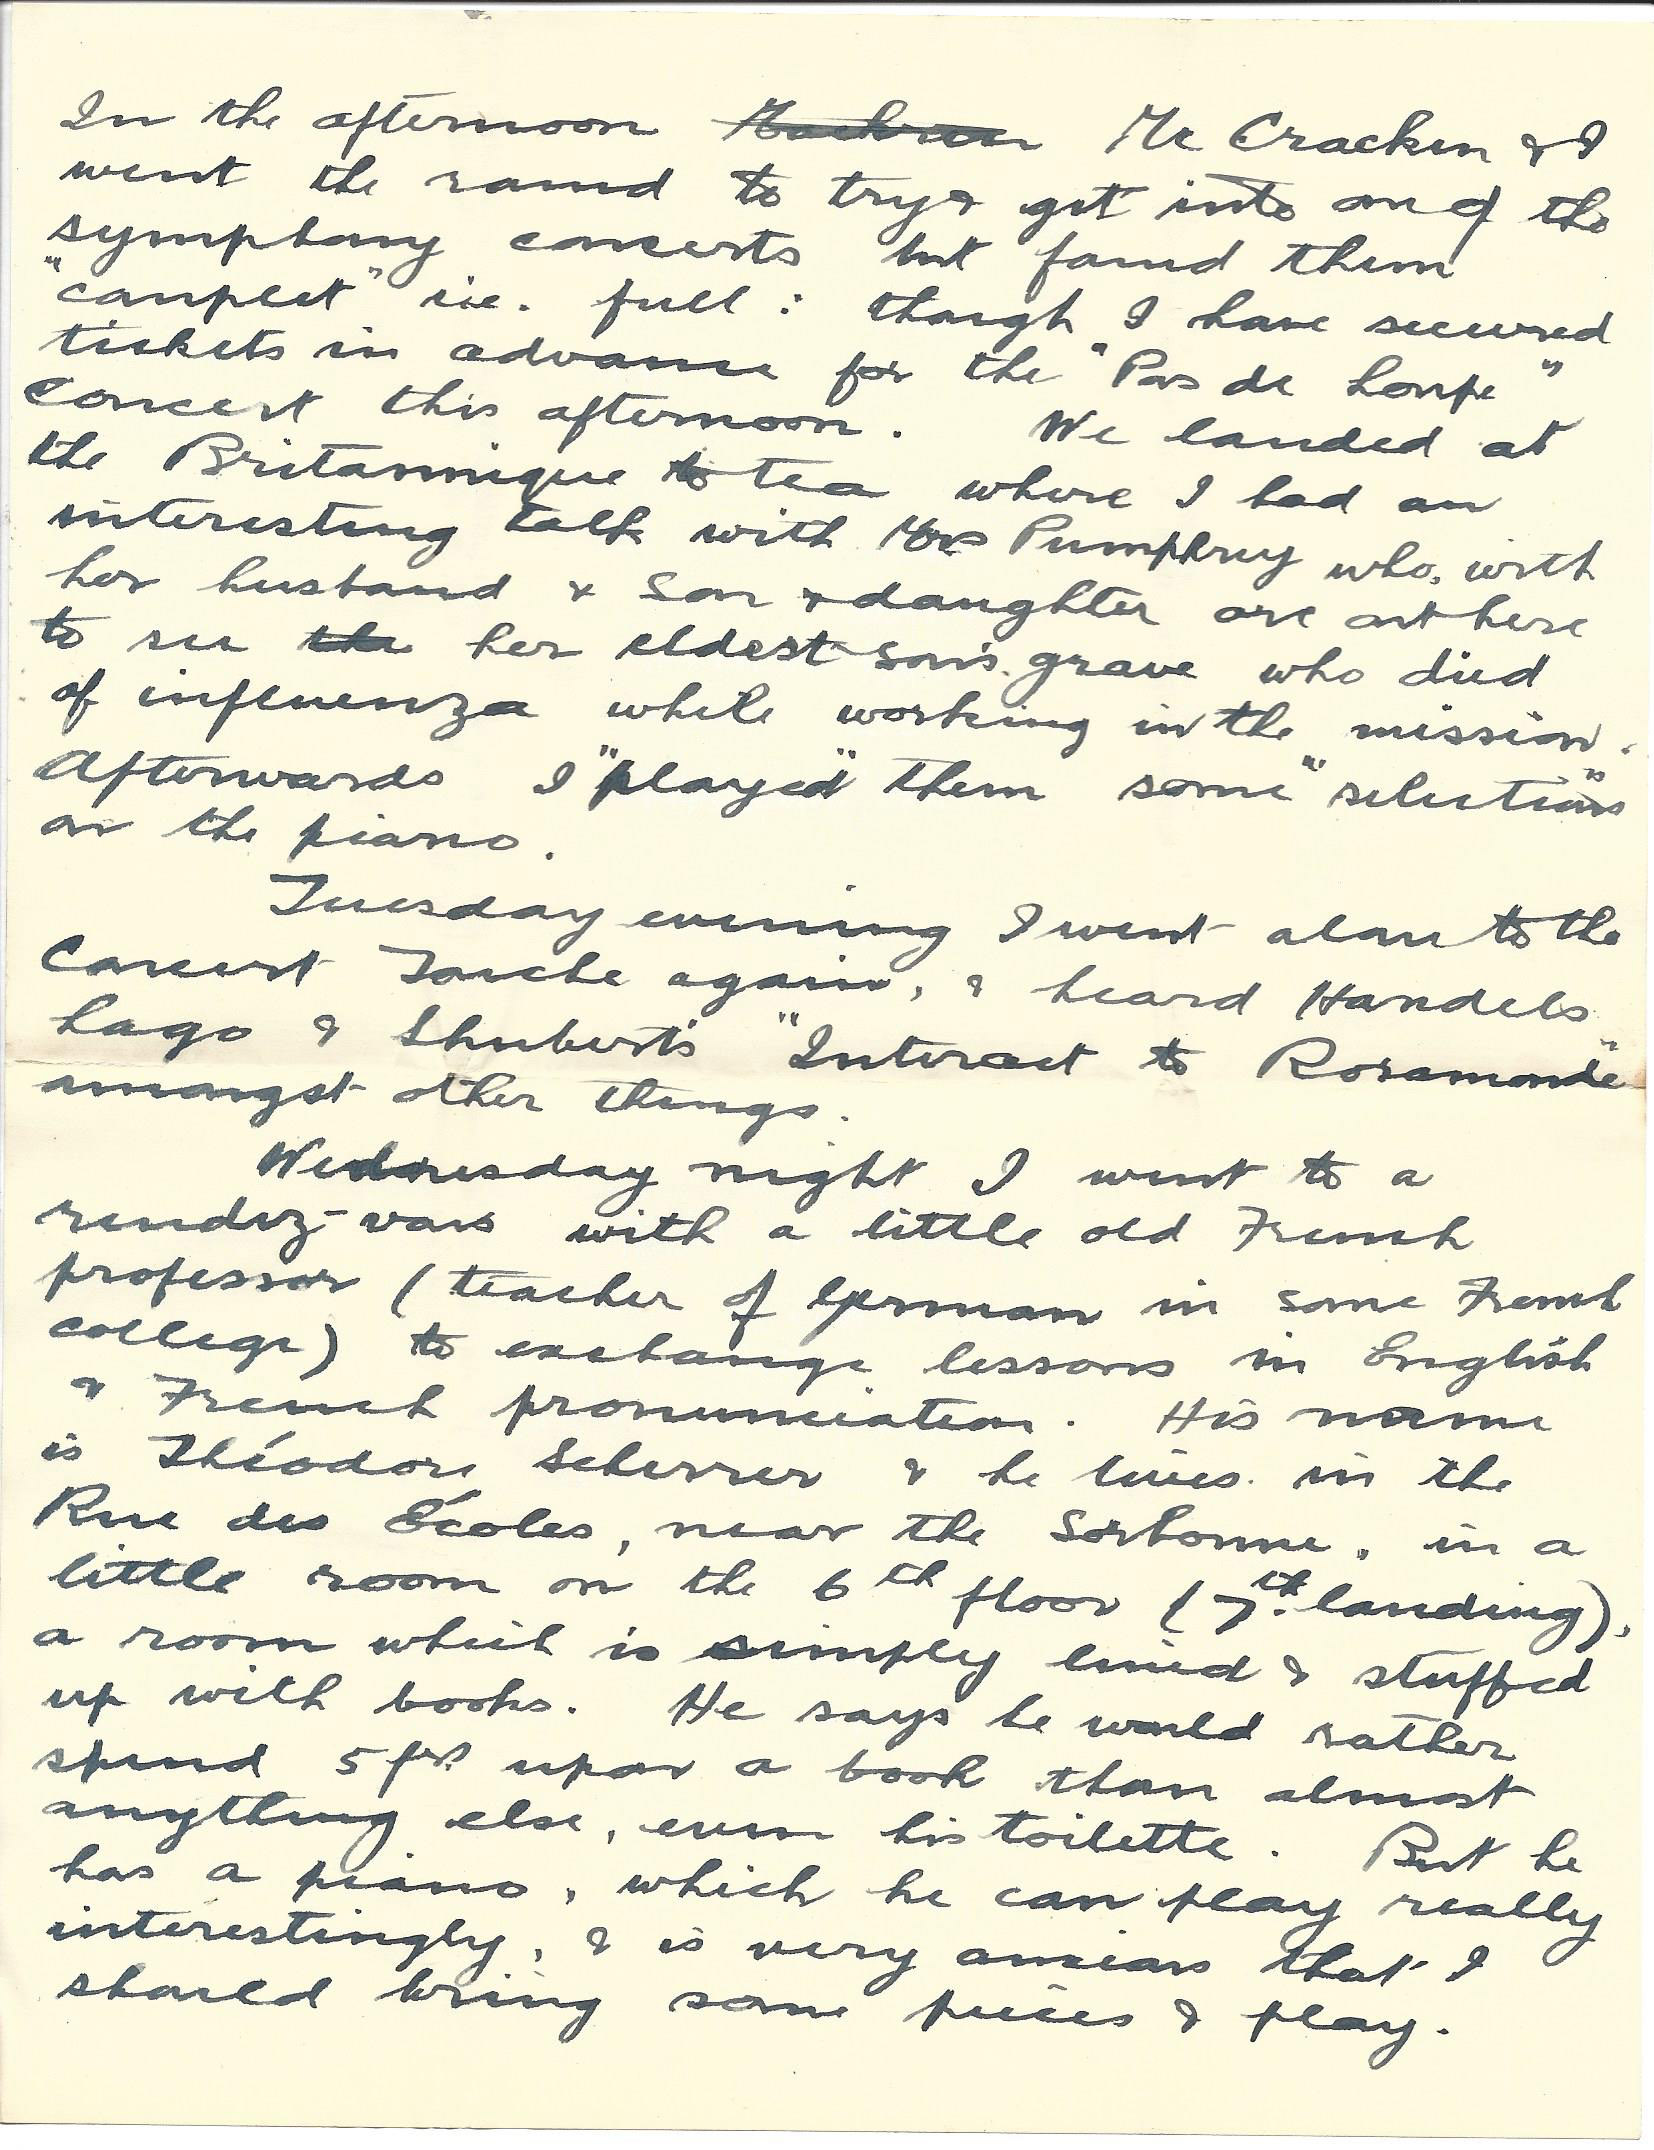 In the afternoon Mc Cracken & I
went the round to try & get into one of the
symphony concerts but found them
"complet" i.e. full : though I have secured
tickets in advance for the "Pas de Loupe"
Concert this afternoon. We landed at
the Britannique to tea where I had an
interesting talk with Mrs Pumphrey who, with
her husband & son & daughter are out here
to see the her eldest son's grave who died
of influenza while working in the mission.
Afterwards I "played" them some "selections"
on the piano.
Tuesday evening I went alone to the
Concert Touche again, & heard Handels
Lago & Shubert's "Interact to Rosamonde"
amongst other things.
Wednesday night I went to a
rendez-vous with a little old French
professor (teacher of German in some French
college) to exchange lessons in English
& French pronunciation. His name
is Théodore Scherrer & he lives in the
Rue des Écoles, near the Sorbonne, in a
little room on the 6th floor (7th landing),
a room which is simply lined & stuffed
up with books. He says he would rather
spend 5 frs upon a book than almost
anything else, even his toilette. But he
has a piano, which he can play really
interestingly, & is very anxious that I
should bring some pieces & play.